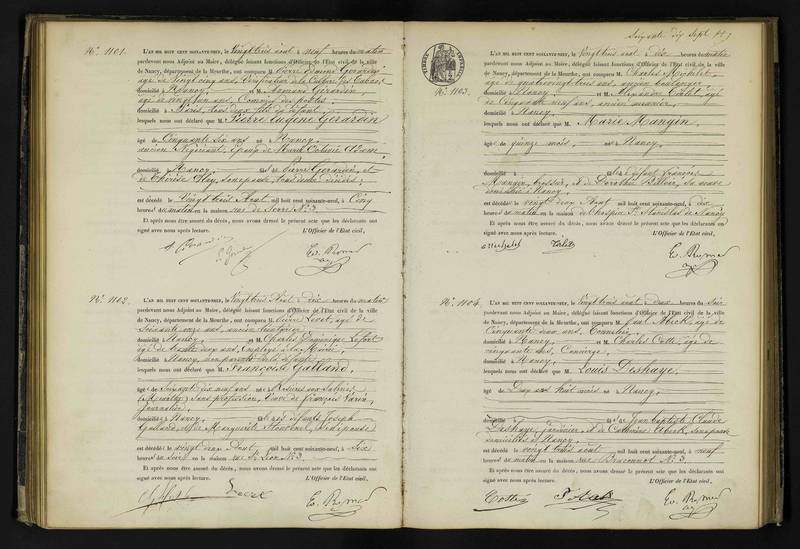 N° 1101. L'AN MIL HUIT CENT SOIXANTE-NEUF, le Vingt trois Août à neuf heures du matin
pardevant nous Adjoint au Maire, délégué faisant fonctions d'Officier de l'État civil de la ville
de Nancy, département de la Meurthe, ont comparu M. Pierre Gérardin
âgé de Vingt cinq ans, Vérificateur de la Culture des Tabacs
domicilié à Nancy, et M. Gérardin
âgé de Vingt un ans, Commis des postes,
domicilié à tous deux fils du défunt
lesquels nous ont déclaré que M. Pierre Eugène Gérardin
âgé de Cinquante six ans né à Nancy,
ancien Négociant, Epoux de Marie Octavie Adam
domicilié à Nancy, fils de Pierre Gérardin, et
de Thérèse sans profession, tous deux décédés,
est décédé le Vingt trois Août mil huit cent soixante-neuf, à Cinq
heures du matin en la maison rue de Serre N° 3.
Et après nous être assuré du décès, nous avons dressé le présent acte que les déclarants ont
signé avec nous après lecture. L'Officier de l'État civil,
N° 1102. L'AN MIL HUIT CENT SOIXANTE-NEUF, le Vingt trois Août à dix heures du matin
pardevant nous Adjoint au Maire, délégué faisant fonctions d'Officier de l'État civil de la ville
de Nancy, département de la Meurthe, ont comparu M. âgé de
Soixante onze ans, ancien
domicilié à Nancy, et M. Charles Dominique Lafort
âgé de trente deux ans, Employé à la Mairie,
domicilié à Nancy, non parents de la défunte
lesquels nous ont déclaré que M. Françoise Galland,
âgée de Soixante dix neuf ans née à Rosières aux Salines,
(Meurthe) Sans profession, Veuve de François
Journalier,
domiciliée à Nancy, fille des défunts Joseph
Galland, et de Marguerite
est décédée le vingt deux Août mil huit cent soixante-neuf, à Six
heures du soir en la maison rue St Léon N° 3.
Et après nous être assuré du décès, nous avons dressé le présent acte que les déclarants ont
signé avec nous après lecture. L'Officier de l'État civil,
Soixante dix sept
N° 1103. L'AN MIL HUIT CENT SOIXANTE-NEUF, le Vingt trois Août à dix heures du matin
pardevant nous Adjoint au Maire, délégué faisant fonctions d'Officier de l'État civil de la ville
de Nancy, département de la Meurthe, ont comparu M. Charles Michelet,
âgé de quatre vingt trois ans, ancien boulanger,
domicilié à Nancy, et M. Alexandre âgé
de Cinquante neuf ans, ancien menuisier,
domicilié à Nancy,
lesquels nous ont déclaré que M. Marie Mangin,
âgée de quinze mois, née à Nancy,
domicilié à fille de défunt François
Mangin, brossier, et de Dorothée sa veuve
domiciliée à Nancy,
est décédée le vingt deux Août mil huit cent soixante-neuf, à dix
heures du matin en la maison de l'hospice St Stanislas de Nancy
Et après nous être assuré du décès, nous avons dressé le présent acte que les déclarants ont
signé avec nous après lecture. L'Officier de l'État civil,
N° 1104. L'AN MIL HUIT CENT SOIXANTE-NEUF, le Vingt trois Août à Deux heures du soir
pardevant nous Adjoint au Maire, délégué faisant fonctions d'Officier de l'État civil de la ville
de Nancy, département de la Meurthe, ont comparu M. Paul âgé de
Cinquante deux ans, Tonnelier,
domicilié à Nancy, et M. Charles Cotté, âgé de
cinquante ans, Concierge,
domicilié à Nancy,
lesquels nous ont déclaré que M. Louis Deshaye,
âgé de Deux ans huit mois né à Nancy,
domicilié à fils de Jean Baptiste Claude
Deshaye, Jardinier et de Catherine sans profession
domiciliés à Nancy,
est décédé le vingt trois Août mil huit cent soixante-neuf, à neuf
heures du matin en la maison rue Braconnot N° 3.
Et après nous être assuré du décès, nous avons dressé le présent acte que les déclarants ont
signé avec nous après lecture. L'Officier de l'État civil,